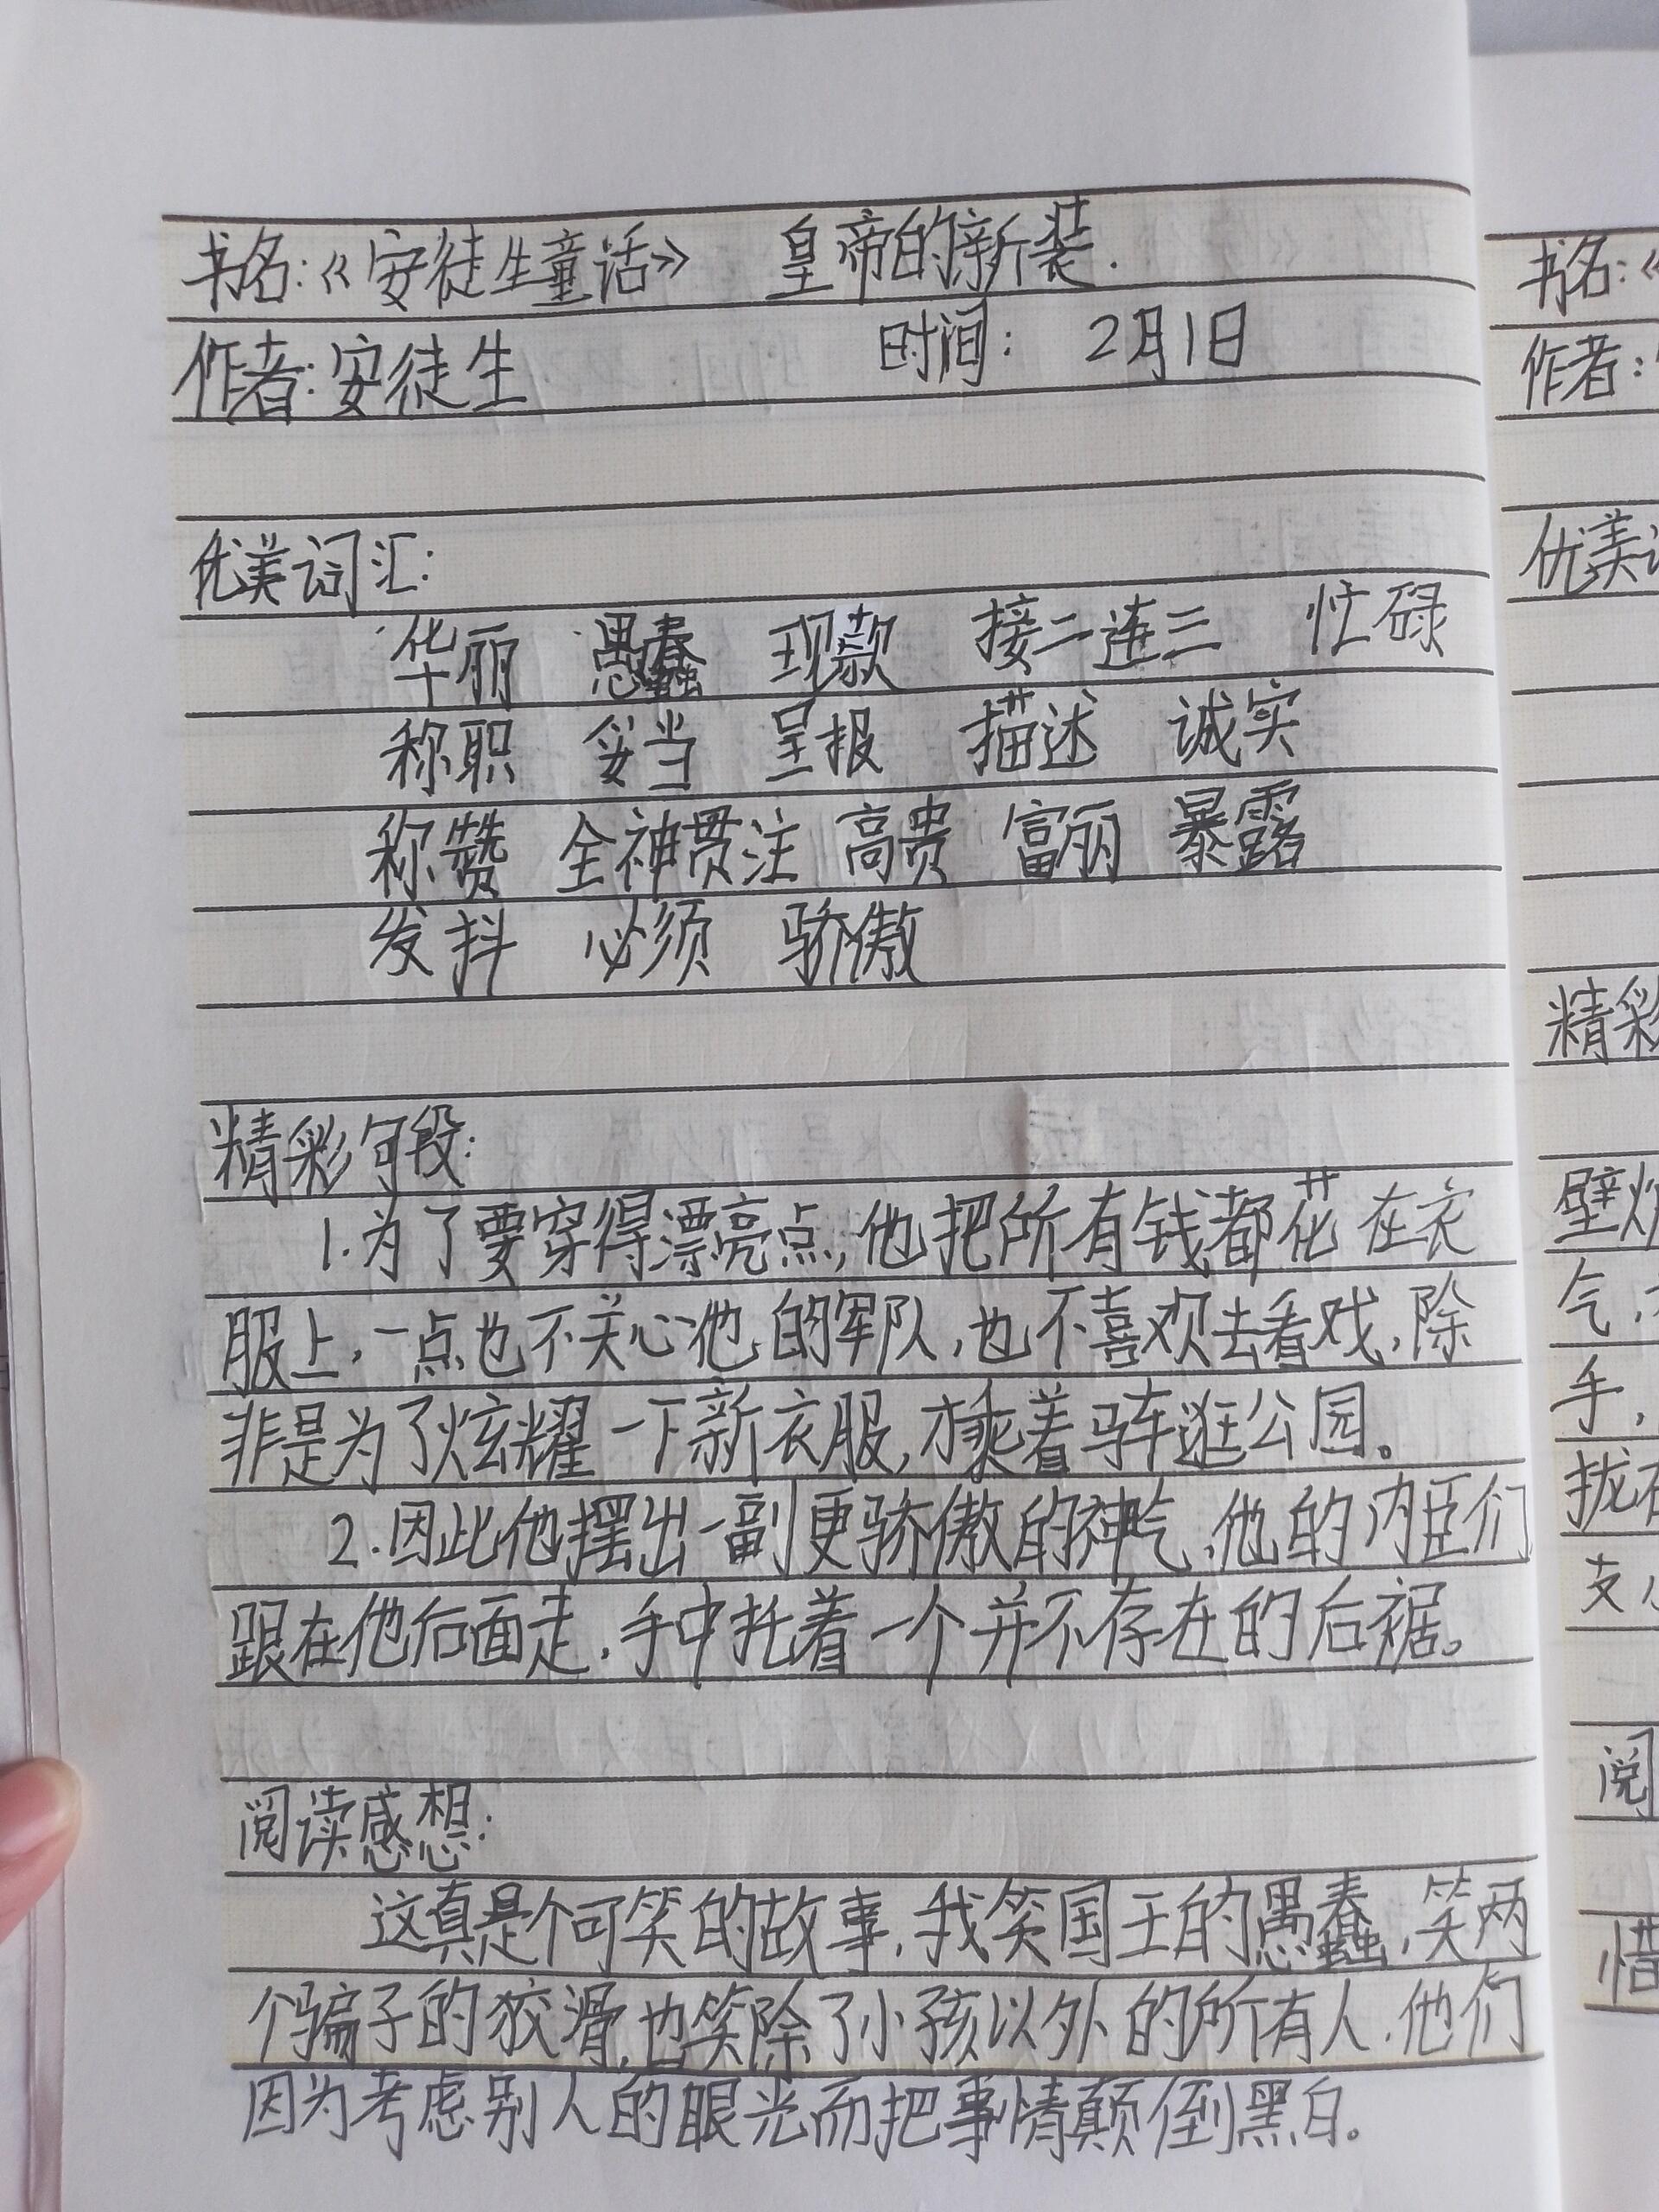 书名:《安徒生童话》 皇帝的新装.
作者:安徒生 时间: 2月1日
优美词汇:
华丽 愚蠢 现款 接二连三 忙碌
称职 妥当 呈报 描述 诚实
称赞 全神贯注 高贵 富丽 暴露
发抖 必须 骄傲
精彩句段:
1.为了要穿得漂亮点,他把所有钱都花在衣
服上,一点也不关心他的军队,也不喜欢去看戏,除
非是为了炫耀一下新衣服,才乘着马车逛公园。
2.因此他摆出一副更骄傲的神气,他的内臣们
跟在他后面走,手中托着一个并不存在的后裾。
阅读感想:
这真是个可笑的故事,我笑国王的愚蠢,笑两
个骗子的狡滑,也笑除了小孩以外的所有人,他们
因为考虑别人的眼光而把事情颠倒黑白。
书名:《
作者:
优美
精彩
壁炉
气,
手,
拢在
支
阅
惜